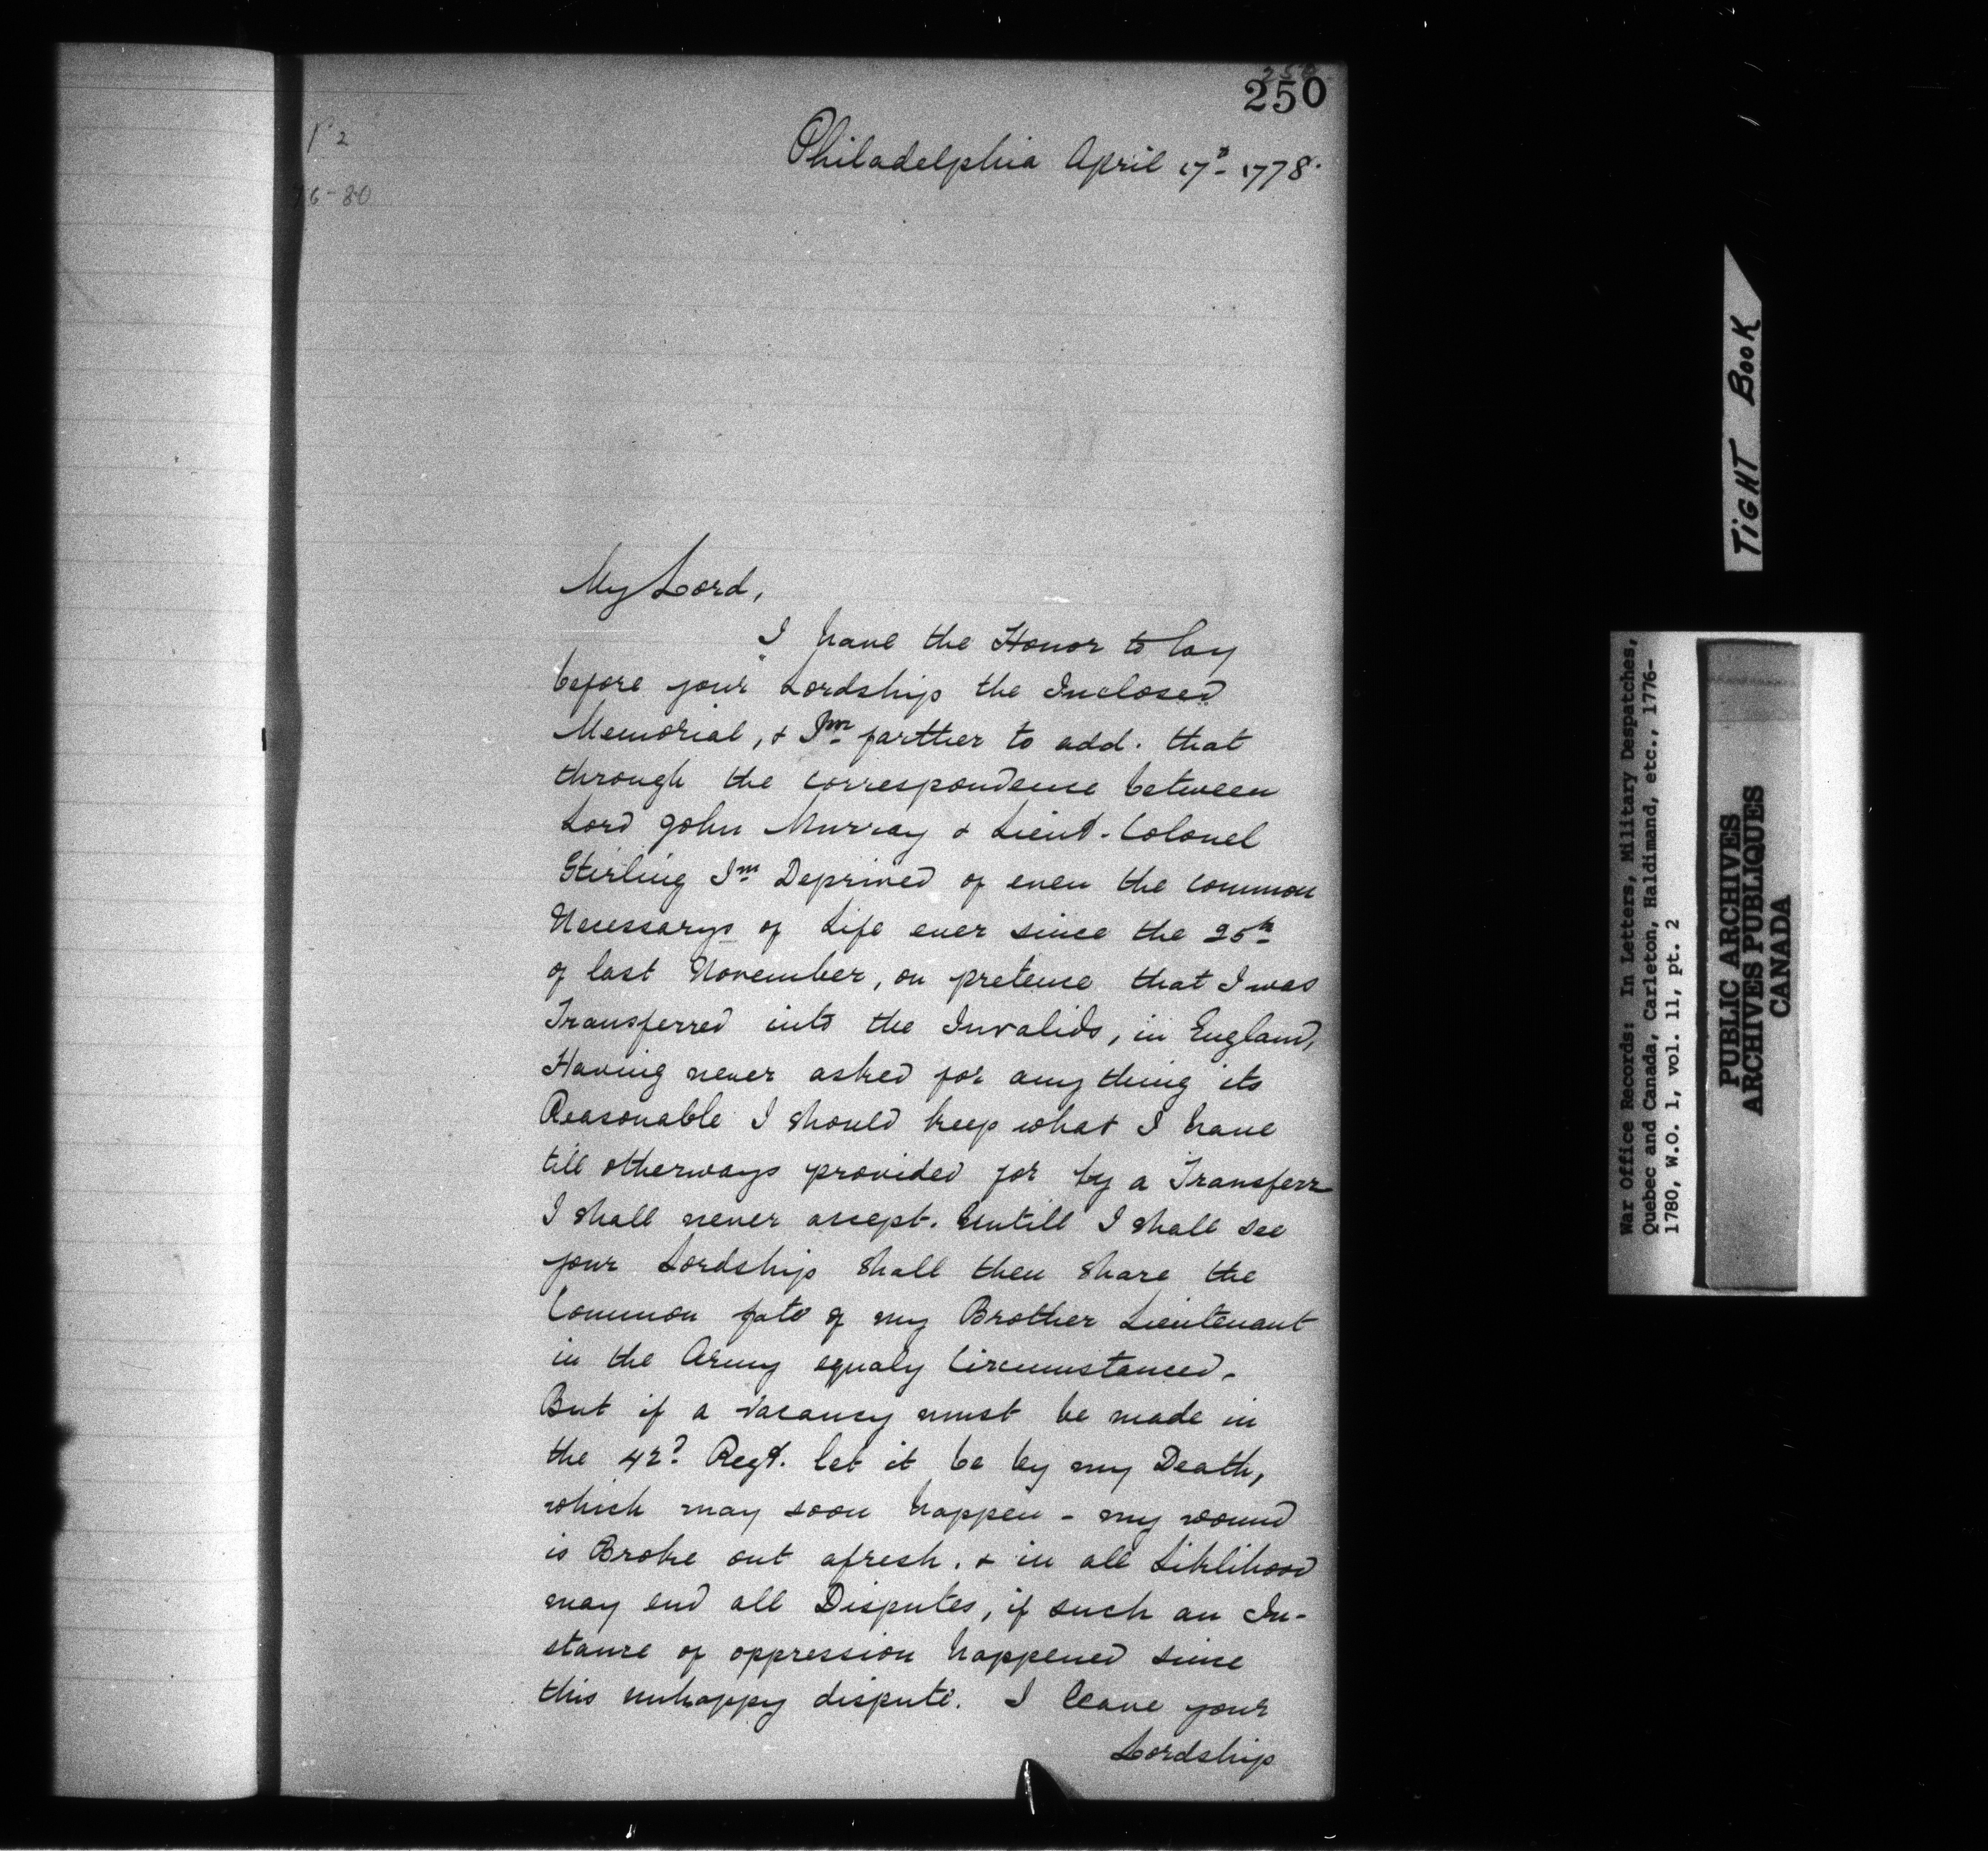 250
Philadelphia April 17th 1778.
P 2
76-80
My Lord,
I have the Honor to lay
before your Lordship the Inclosed
Memorial, & I'm farther to add. that
through the correspondence between
Lord John Murray & Lieut. Colonel
Stirling I'm Deprived of even the common
Necessarys of Life ever since the 25th
of last November, on pretence that I was
Transferred into the Invalids, in England,
Having never asked for any thing its
Reasonable I should keep what I have
till otherways provided for by a Transferr
I shall never accept. Untill I shall see
your Lordship shall then share the
Common fate of my Brother Lieutenant
in the Army equaly Circumstanced.
But if a Vacancy must be made in
the 42d Regt. let it be by my Death,
which may soon happen - my wound
is Broke out afresh. & in all Liklihood
may end all Disputes, if such an In-
stance of oppression happened since
this unhappy dispute. I leave your
Lordship
TIGHT BOOK
War Office Records: In Letters, Military Despatches,
Quebec and Canada, Carleton, Haldimand, etc., 1776-
1780, W.O. 1, vol. 11, pt. 2
PUBLIC ARCHIVES
ARCHIVES PUBLIQUES
CANADA